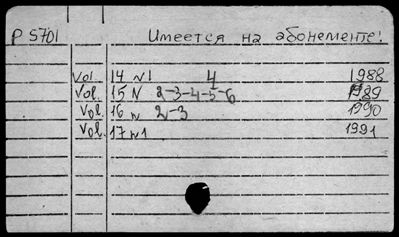 P 5701 Имеется на абонементе!
Vol. 14 N 1 4 1988
Vol. 15 N 2-3-4-5-6 1989
Vol. 16 N 2-3 1990
Vol. 17 N 1 1991